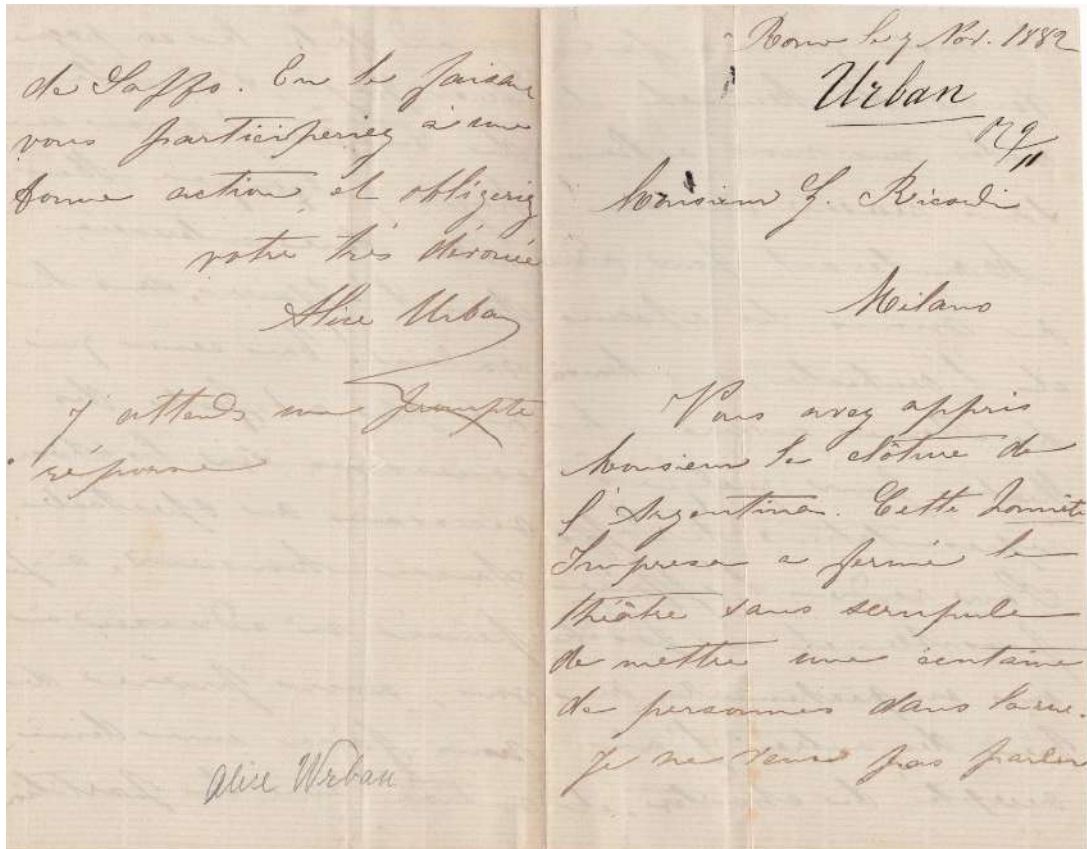 de Saffo. En le faisant
vous participeriez à une
bonne action et obligeriez
votre très dévouée
Alice Urban
J'attends une prompte
réponse
Alice Urban
Rome le 7 Nov. 1882
Urban
9/11
Monsieur G. Ricordi
Milano
Vous avez appris
Monsieur la clôture de
l'Argentina. Cette honnête
Impresa a fermé le
théâtre sans scrupule
de mettre une centaine
de personnes dans la rue.
Je ne veux pas parler